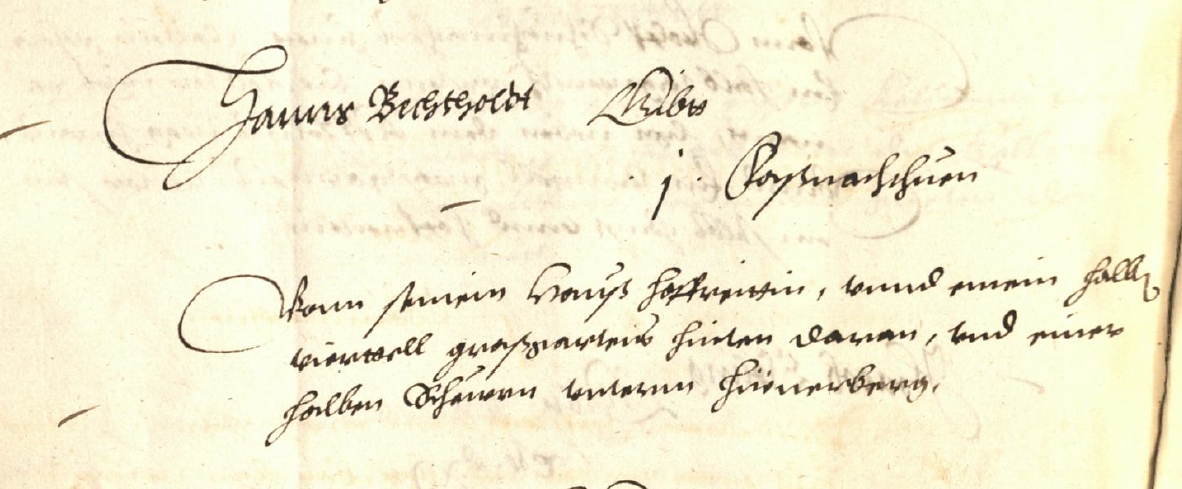 Hanns Bechtholdt Gibtt
1. Faßnachthuen
Vonn seinem Hauß hoffreittin, vnnd einem halb
viertell graßgartens hinten daran, vnd einer
halben Scheuren vnterm Hünerberg.